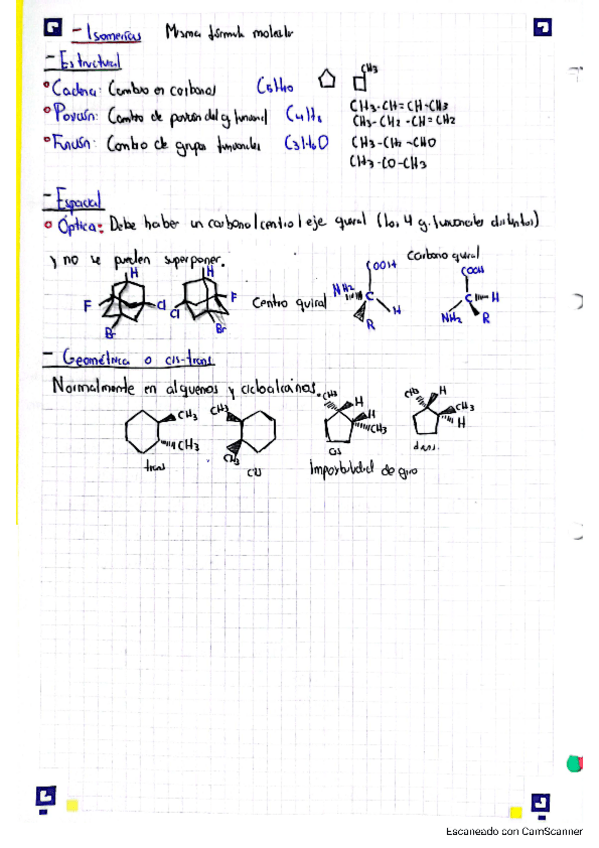 - Isomerías Misma fórmula molecular
- Estructural
Cadena: Cambio en carbonos C5H10 CH3
Posición: Cambio de posición del g. funcional C4H8 CH3-CH=CH-CH3
CH3-CH2-CH=CH2
Función: Cambio de grupos funcionales C3H6O CH3-CH2-CHO
CH3-CO-CH3
- Espacial
Óptica: Debe haber un carbono/centro/eje quiral (los 4 g. funcionales distintos)
y no se pueden superponer. Carbono quiral
H H COOH COOH
F Cl Cl F Centro quiral NH2 C H C H
Br Br R NH2 R
- Geométrica o cis-trans
Normalmente en alquenos y cicloalcanos.
CH3 CH3 CH3 H CH3 H
CH3 H CH3 CH3 H
CH3
trans cis cis trans.
Imposibilidad de giro
Escaneado con CamScanner